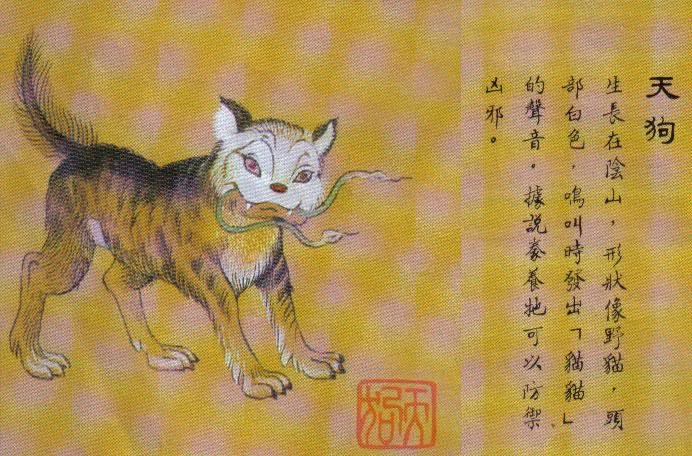 天狗
生長在陰山，形狀像野貓，頭
部白色，鳴叫時發出「貓貓」
的聲音。據說豢養牠可以防禦
凶邪。
天狗